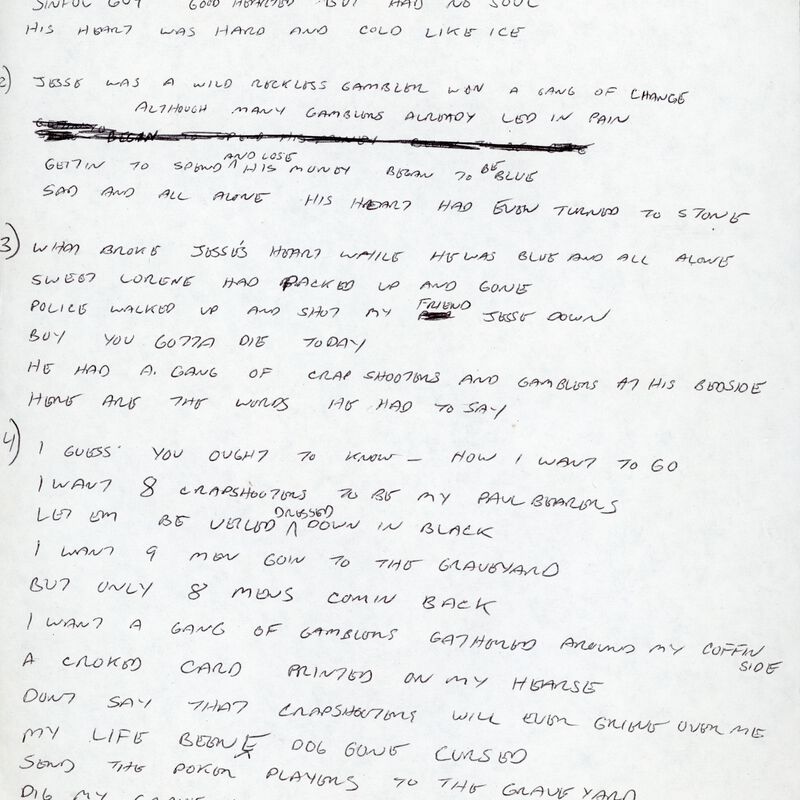 SINFUL GUY GOOD HEARTED BUT HAD NO SOUL
HIS HEART WAS HARD AND COLD LIKE ICE
2) JESSE WAS A WILD RECKLESS GAMBLER WON A GANG OF CHANGE
ALTHOUGH MANY GAMBLERS ALREADY LED IN PAIN
BEGAN TO SPEND HIS MONEY
GETTIN TO SPEND AND LOSE HIS MONEY BEGAN TO BE BLUE
SAD AND ALL ALONE HIS HEART HAD EVEN TURNED TO STONE
3) WHAT BROKE JESSE'S HEART WHILE HE WAS BLUE AND ALL ALONE
SWEET LORENE HAD PACKED UP AND GONE
POLICE WALKED UP AND SHOT MY FRIEND JESSE DOWN
BUY YOU GOTTA DIE TODAY
HE HAD A GANG OF CRAP SHOOTERS AND GAMBLERS AT HIS BEDSIDE
HERE ARE THE WORDS HE HAD TO SAY
4) I GUESS YOU OUGHT TO KNOW — HOW I WANT TO GO
I WANT 8 CRAPSHOOTERS TO BE MY PAULBEARERS
LET EM BE VEILED DRESSED DOWN IN BLACK
I WANT 9 MEN GOIN TO THE GRAVEYARD
BUT ONLY 8 MENS COMIN BACK
I WANT A GANG OF GAMBLERS GATHERED AROUND MY COFFIN SIDE
A CROKED CARD PRINTED ON MY HEARSE
DONT SAY THAT CRAPSHOOTERS WILL EVER GRIEVE OVER ME
MY LIFE BEEN E DOG GONE CURSED
SEND THE POKER PLAYERS TO THE GRAVEYARD
DIG MY